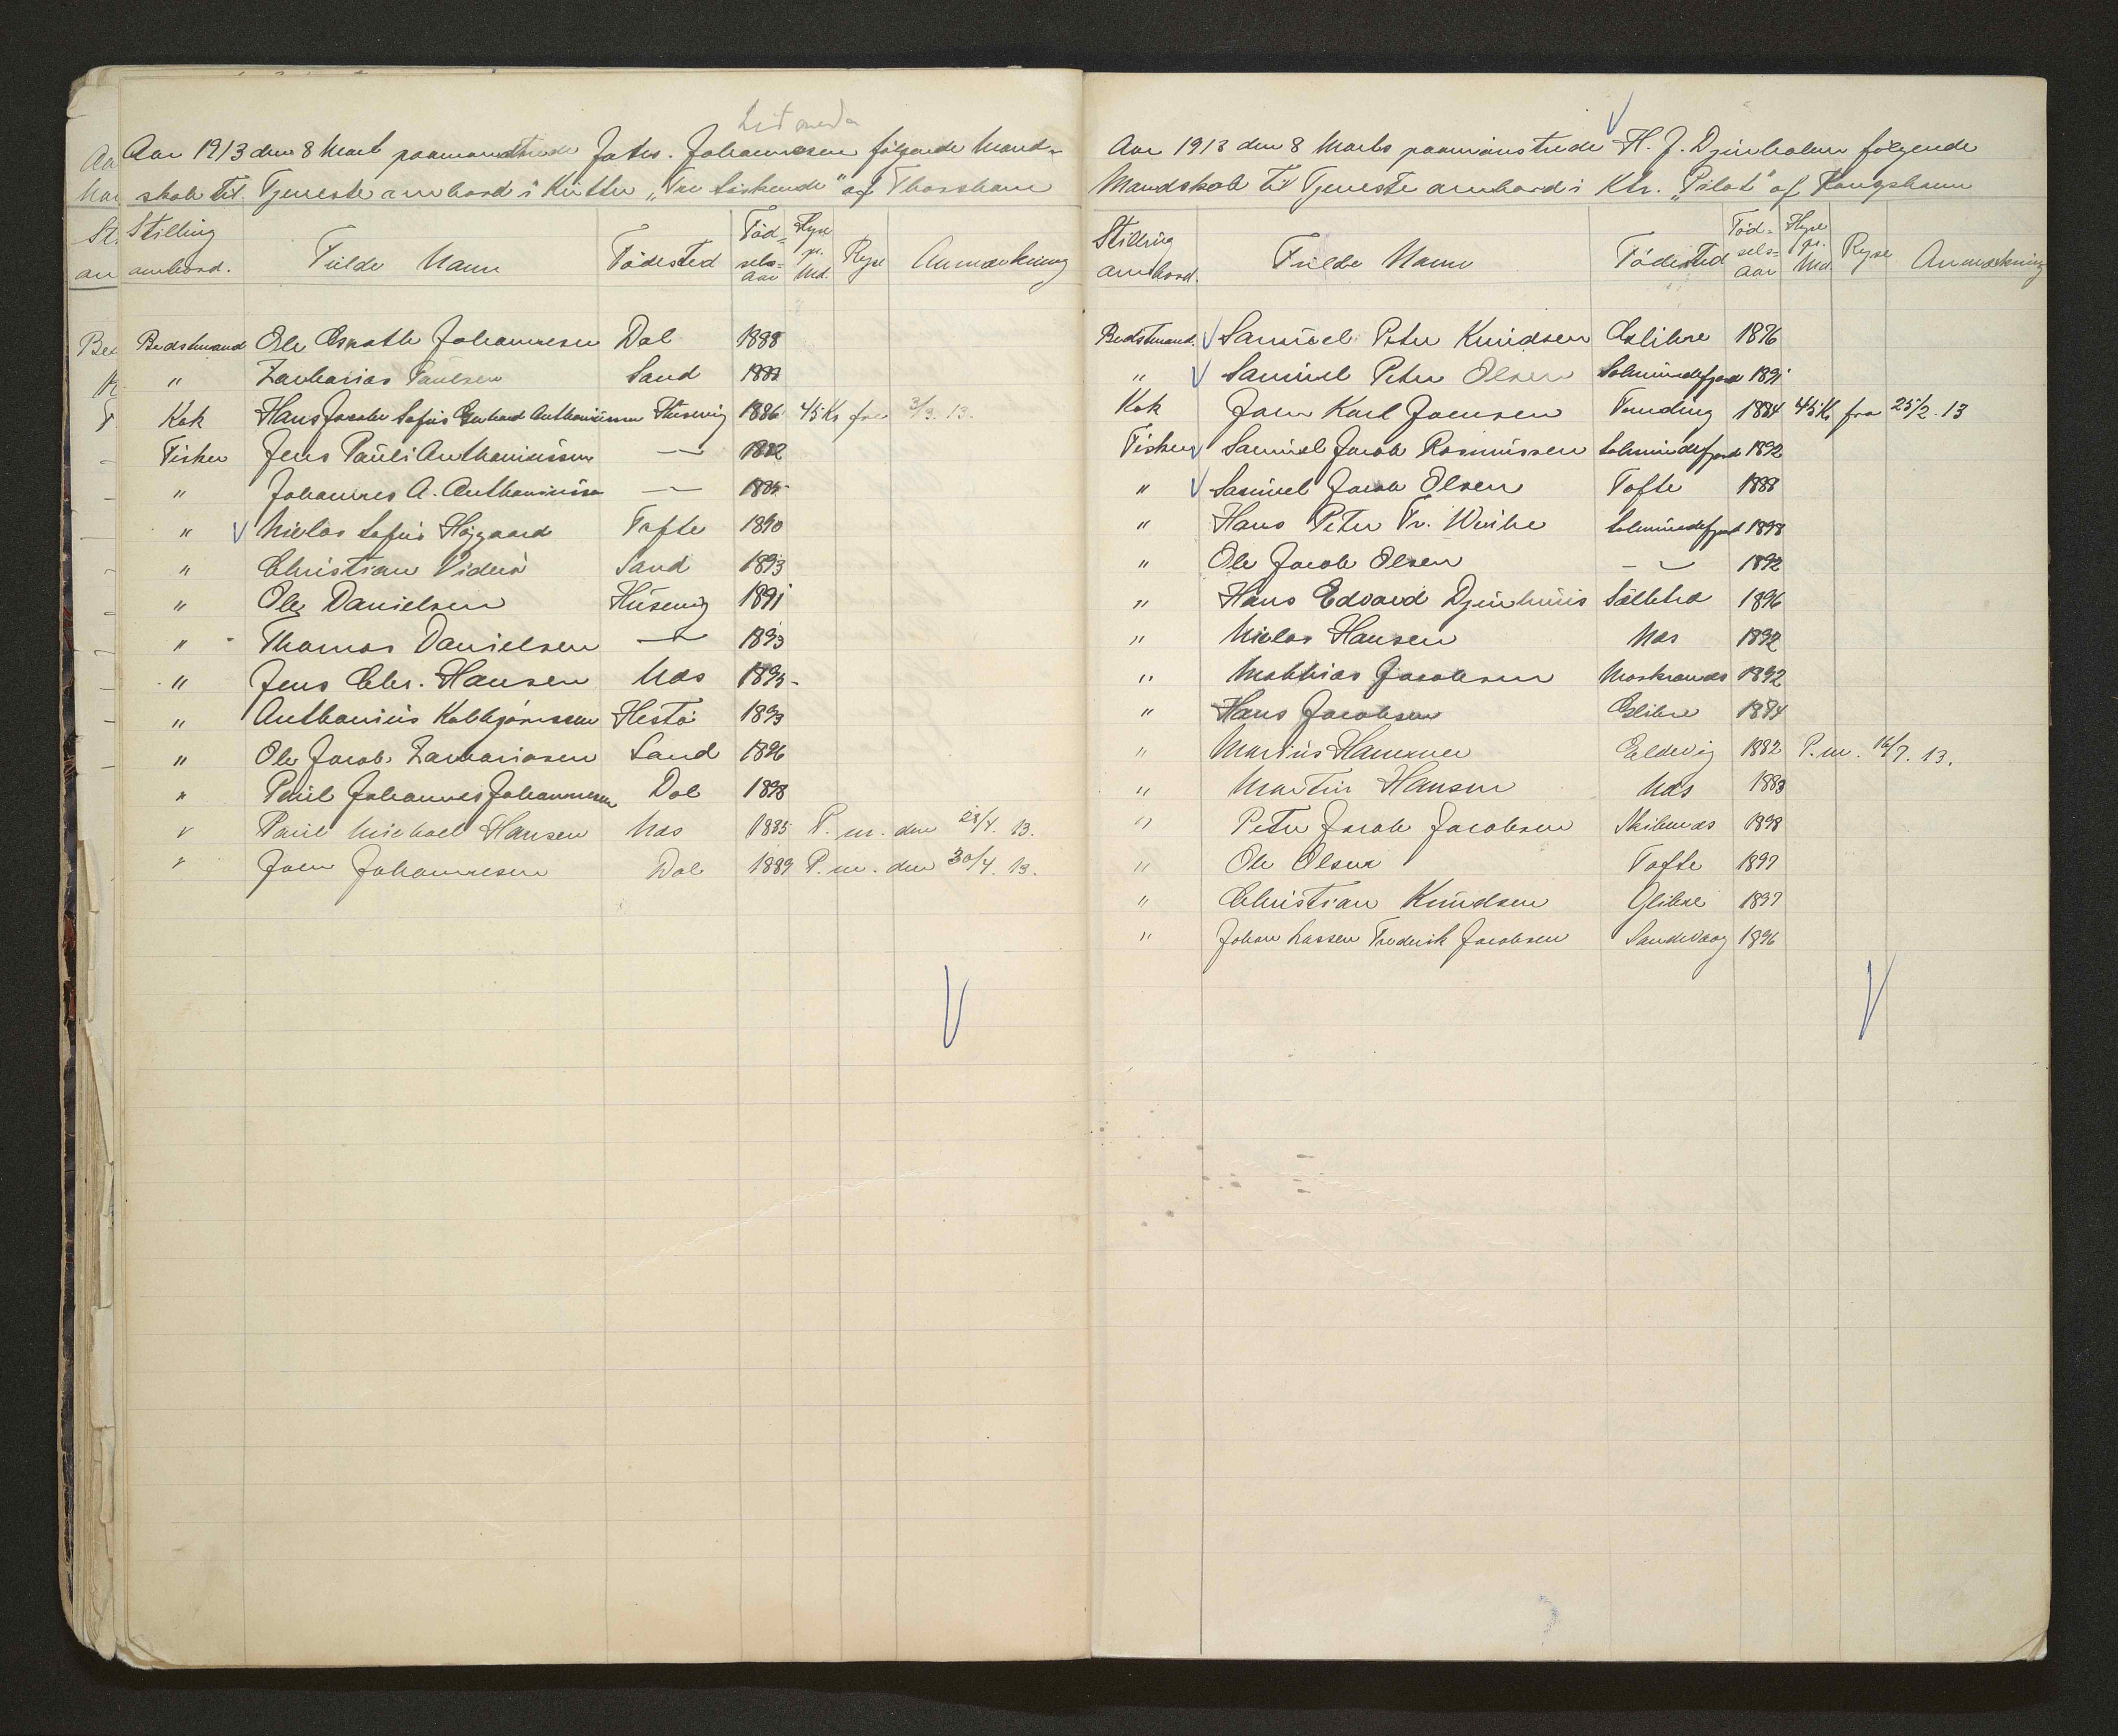 Aar 1913 den 8 Marts paamønstrede Johs. Johannesen følgende Mand-
skab til Tjeneste ombord i Kutter "Tre Søskende" af Thorshavn
Stilling ombord. Fulde Navn Fødested Fødselsaar Hyre pr. Md. Hyre Anmærkning
Bedstmand Ole Johannesen Dal 1888
" Zacharias Paulsen Sand 1883
Kok Hans Jacob Sofus Anthoniussen Húsevig 1886 45 Kr fra 3/3. 13.
Fisker Jens Pauli Anthoniussen — 1882
" Johannes A. Anthoniussen — 1885
" Niclas Sofus Højgaard Tofte 1890
" Christian Viderø Sand 1893
" Ole Danielsen Húsevig 1891
" Thomas Danielsen — 1893
" Jens Chr. Hansen Næs 1895
" Anthonius Hestø 1893
" Ole Jacob Zachariasen Sand 1896
" Poul Johannes Johannesen Dal 1898
" Poul Michael Hansen Næs 1885 P. m. den 28/4. 13.
" Joen Johannesen Dal 1889 P. m. den 30/4. 13.
Aar 1913 den 8 Marts paamønstrede H. J. Djurholm følgende
Mandskab til Tjeneste ombord i Ktr. "Pilot" af Kongshavn
Stilling ombord. Fulde Navn Fødested Fødselsaar Hyre pr. Md. Hyre Anmærkning
Bedstmand. Samuel Peter Knudsen Glibre 1876
" Samuel Peter Olsen Solmundefjord 1891
Kok Joen Karl Joensen Funding 1884 45 Kr fra 25/2. 13
Fisker Samuel Jacob Rasmussen Solmundefjord 1892
" Samuel Jacob Olsen Tofte 1888
" Hans Peter Fr. Weihe Solmundefjord 1898
" Ole Jacob Olsen — 1892
" Hans Edvard Djurhuus 1896
" Niclas Hansen Næs 1892
" Matthias Jacobsen Morkranæs 1892
" Hans Jacobsen Glibre 1874
" Marius Hammer Eldevig 1882 P. m. 16/7. 13.
" Martin Hansen Næs 1883
" Peter Jacob Jacobsen Skibenæs 1898
" Ole Olsen Tofte 1897
" Christian Knudsen Glibre 1897
" Johan Lassen Frederik Jacobsen Sandevaag 1896